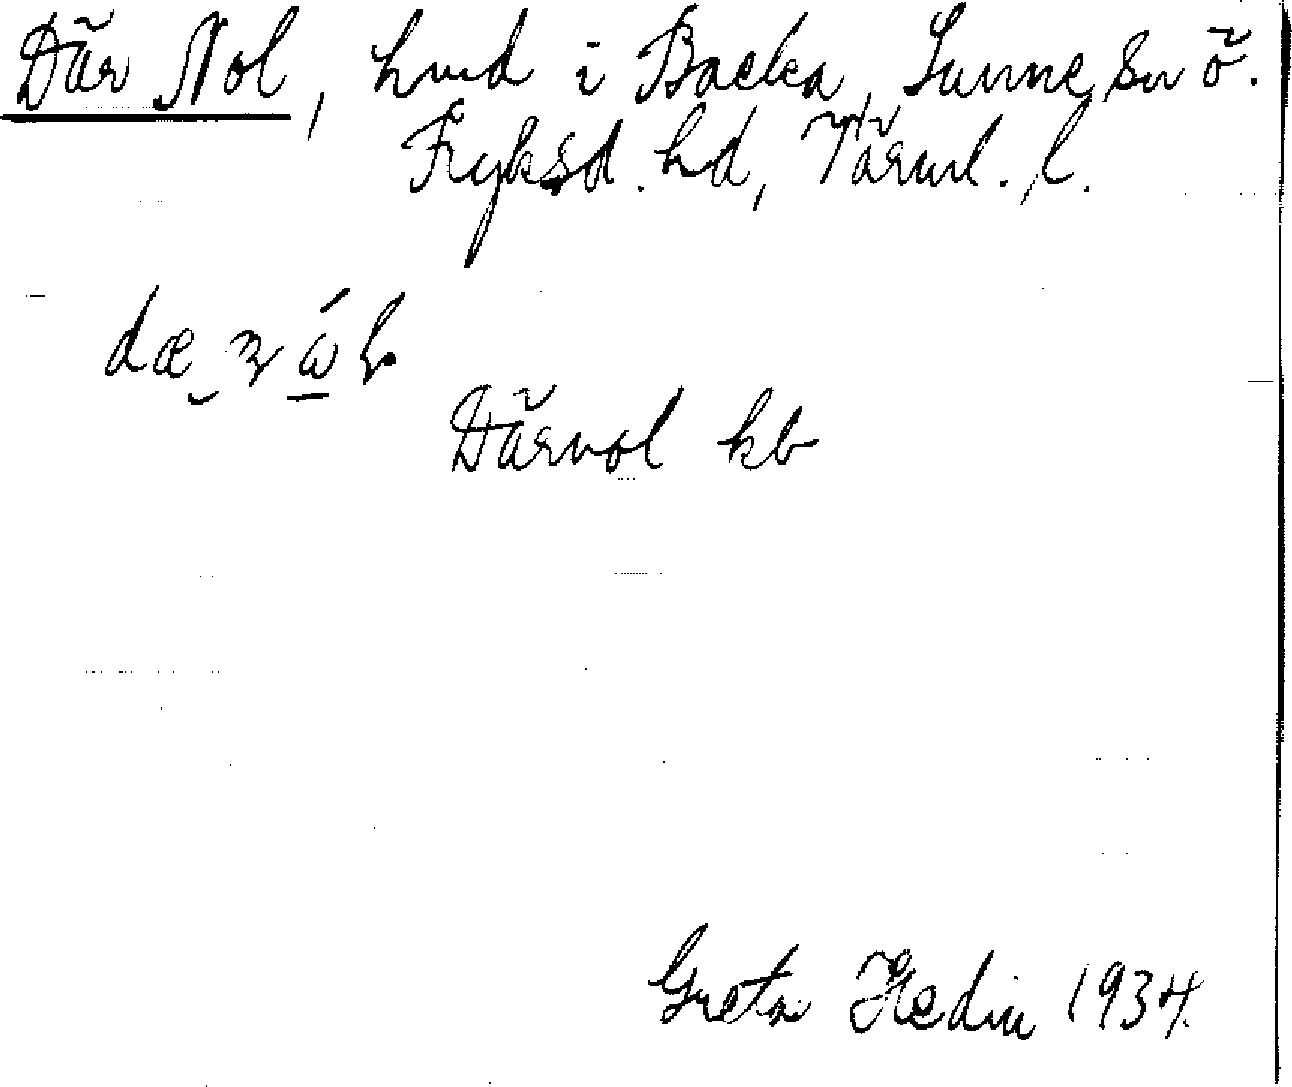 Där Nol, hmd i Backa, Sunne sn ö.
Fryksd. hd, Värml. l.
Därnol kb
Greta Hedin 1934.